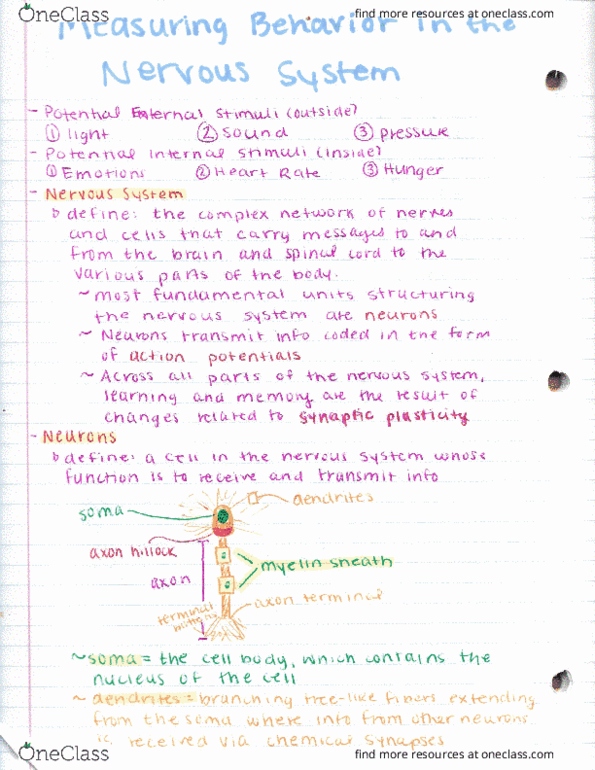 OneClass
find more resources at oneclass.com
Measuring Behavior in the
Nervous System
- Potential External Stimuli (outside)
① light ② sound ③ pressure
- Potential Internal Stimuli (inside)
① Emotions ② Heart Rate ③ Hunger
- Nervous System
define: the complex network of nerves
and cells that carry messages to and
from the brain and spinal cord to the
various parts of the body.
~ most fundamental units structuring
the nervous system are neurons
~ Neurons transmit info coded in the form
of action potentials
~ Across all parts of the nervous system,
learning and memory are the result of
changes related to synaptic plasticity
- Neurons
define: a cell in the nervous system whose
function is to receive and transmit info
dendrites
soma
axon hillock
myelin sheath
axon
axon terminal
terminal
~ soma = the cell body, which contains the
nucleus of the cell
~ dendrites = branching tree-like fibers extending
from the soma where info from other neurons
is received via chemical synapses
OneClass
find more resources at oneclass.com